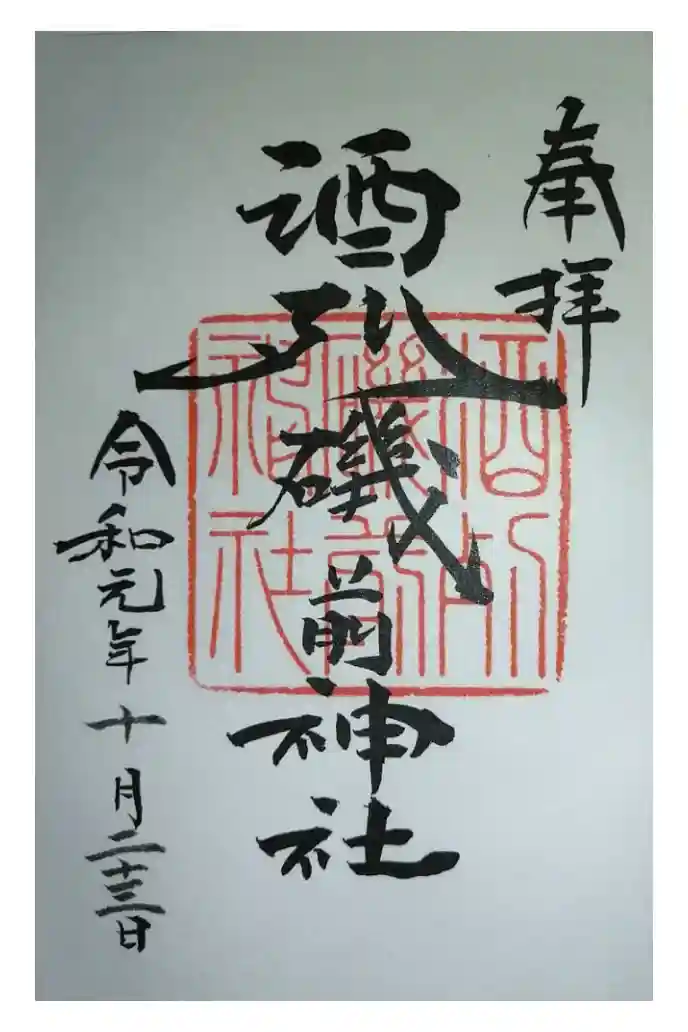 奉拝
酒列磯前神社
酒列
磯前
神社
令和元年十月二十三日